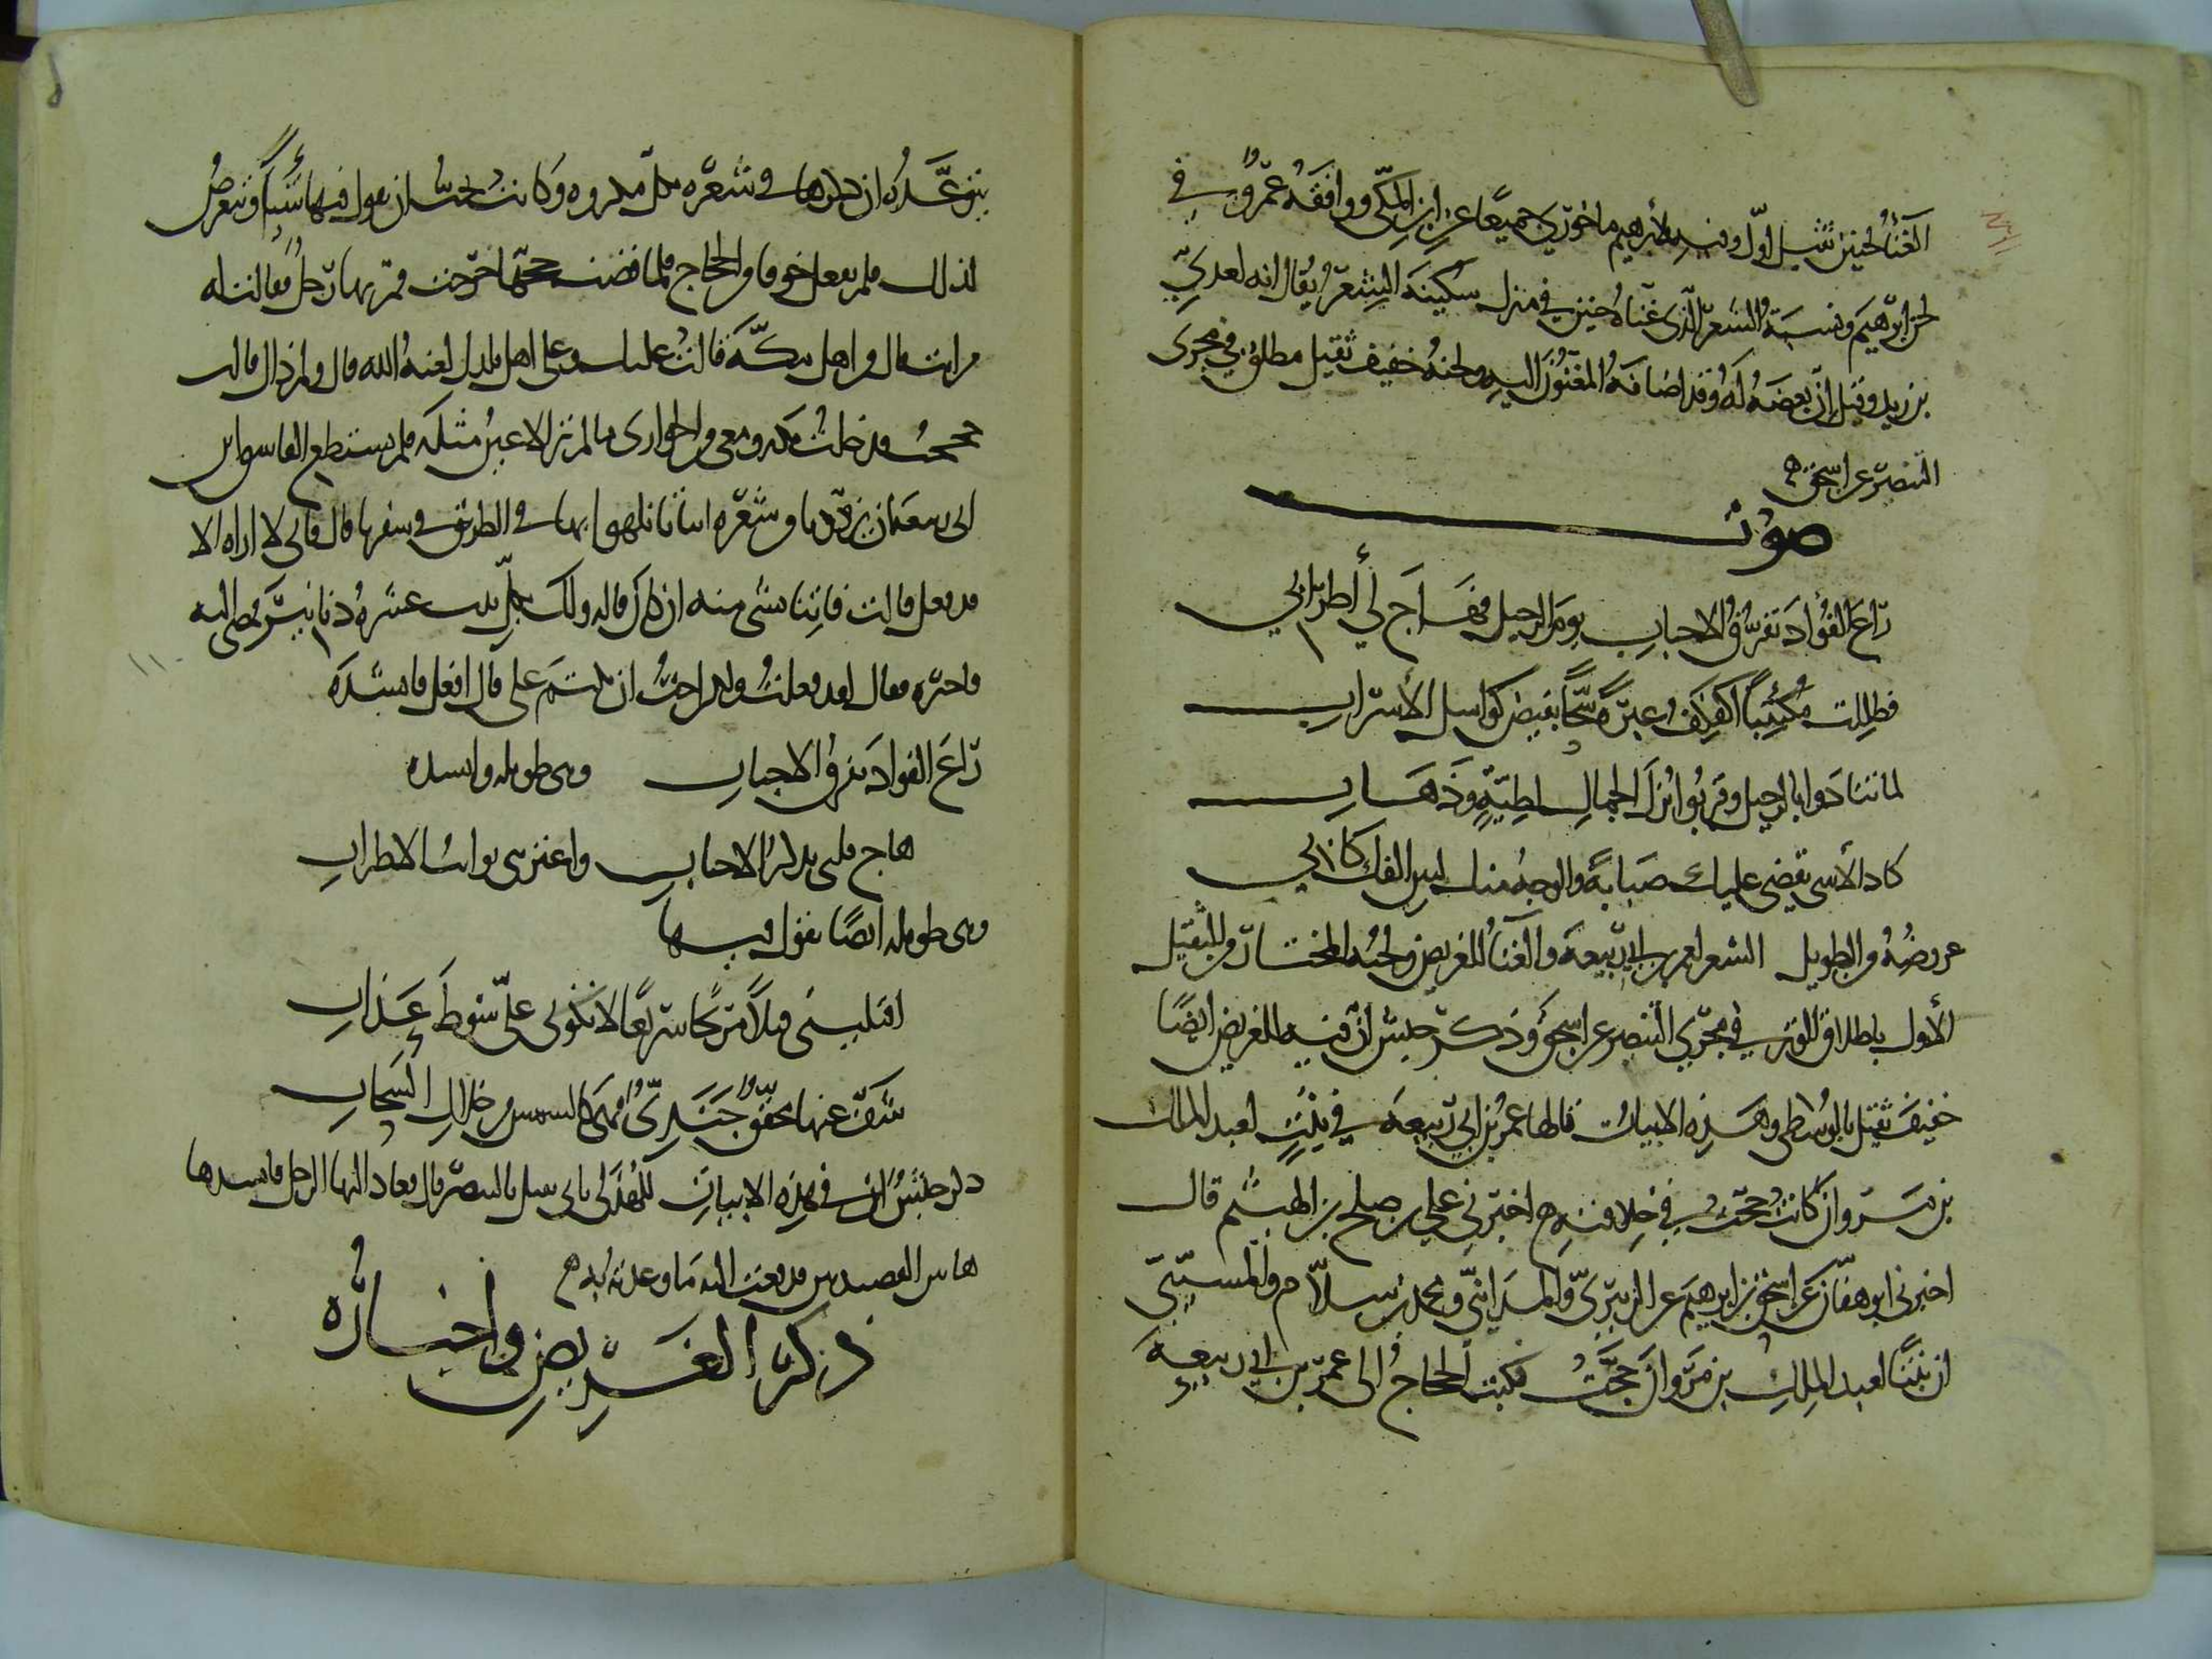 الغناء لحنين ثقيل اوّل وفيه لابرهيم ماخوري جميعًا عن ابن المكّي ووافقه عمرو في
لحن ابرهيم ونسبة الشعر الّذى غنّاه حنين في منزل سكينة الشعر يقال انه لعديّ
بن زيد وقيل انّ بعضه له وقد اضافه المغنّون اليه ولحنه خفيف ثقيل مطلق في مجرى
البنصر عن اسحق
صوت
راعَ الفؤادَ تفرّقُ الاحبابِ يوم الرحيل فهاج لي أطرابي
فظللت مُكتئبًا اكفكف عبرةً سحًّا يفيض كوابل الأسراب
لما تنادوا بالرحيل وقرّبوا بزل الجمال لطيّةٍ وذهاب
كاد الأسى يقضي عليك صبابةً والوجه منك لبين الفك كابي
عروضُهُ من الطويل الشعر لعمر بن ابي ربيعة والغناء للغريض ولحنه المختار من الثقيل
الأول باطلاق الوتر في مجرى البنصر عن اسحق وذكر حبش انّ فيه للغريض ايضًا
خفيف ثقيل بالوسطى وهذه الابيات قالها عمر بن ابي ربيعة في بنت لعبد الملك
بن مروان كانت حجّت في خلافته اخبرني علي بن صلح بن الهيثم قال
اخبرني ابو هفّان عن اسحق بن ابرهيم عن الزبيريّ والمدائنيّ ومحمد بن سلّام والمسيّبيّ
ان بنتًا لعبد الملك بن مروان حجّت فكتب الحجاج الى عمر بن ابي ربيعة
يتوعّده ان ذكرها في شعره بكل مكروه وكانت تحبّ ان يقول فيها شيئًا وتتعرض
لذلك فلم يفعل خوفا من الحجاج فلما قضت حجّها خرجت فمرّ بها رجل فقالت له
من انت قال من اهل مكّة قالت عليك وعلى اهل بلدك لعنة الله قال ولم ذاك قالت
حججت فدخلت مكة ومعي من الجواري ما لم تر الاعين مثله فلم يستطع الفاسق ابن
ابي ربيعة ان يزوّدنا من شعره ابياتا نلهوا بها في الطريق في سفرنا قال فاني لا اراه الا
قد فعل قالت فاتنا بشى منه ان كان قاله ولك بكلّ بيت عشرة دنانير فمضى اليه
فاخبره فقال لقد فعلت ولكن احب ان تكتم على قال افعل فانشده
راعَ الفواد تفرق الاحباب وهى طويله وانشده
هاج قلبى تذكر الاحباب واعترتنى نوائب الاطراب
وهى طويله ايضًا يقول فيها
اقتليني قتلًا مريحًا سريعًا لا تكوني عليّ سوط عذاب
شفّ عنها محقّق جنديّ فهى كالشمس من خلال السحاب
ذكر حبش ان في هذه الابيات للهذلى ثاني ثقيل بالبنصر قال فعاد اليها الرجل فانشدها
هاتين القصيدتين فدفعت اليه ما وعدته به
ذكر الغريض واخباره